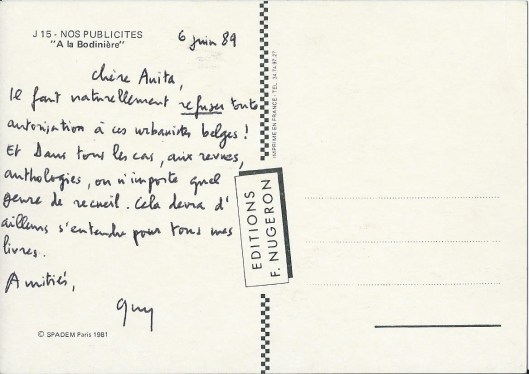 J 15 - NOS PUBLICITES
"A la Bodinière"
6 juin 89
Chère Anita,
Il faut naturellement refuser toute
autorisation à ces urbanistes belges !
Et dans tous les cas, aux revues,
anthologies, ou n'importe quel
genre de recueil. Cela devra d'
ailleurs s'entendre pour tous mes
livres.
Amitiés,
Guy
© SPADEM Paris 1981
IMPRIMÉ EN FRANCE - TEL.
EDITIONS
F. NUGERON